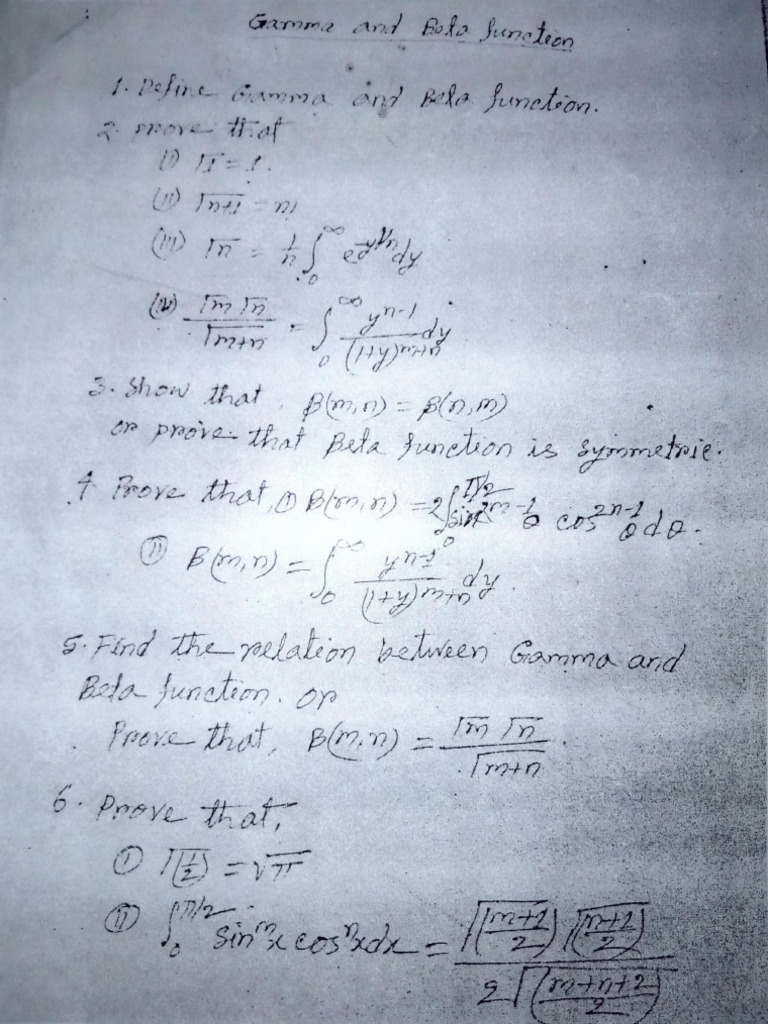 Gamma and Beta function
1. Define Gamma and Beta function.
2. prove that
(i) Γ1 = 1.
(ii) Γn+1 = n!
(iii) Γn = 1/n ∫₀^∞ e^(-y^(1/n)) dy
(iv) Γm Γn / Γm+n = ∫₀^∞ y^(n-1) / (1+y)^(m+n) dy
3. Show that, β(m,n) = β(n,m)
or prove that Beta function is symmetric.
4. Prove that, (i) B(m,n) = 2∫₀^(π/2) sin^(2m-1) θ cos^(2n-1) θ dθ.
(ii) B(m,n) = ∫₀^∞ y^(n-1) / (1+y)^(m+n) dy.
5. Find the relation between Gamma and
Beta function. or
Prove that, B(m,n) = Γm Γn / Γm+n.
6. Prove that,
(i) Γ(1/2) = √π
(ii) ∫₀^(π/2) sin^m x cos^n x dx = Γ((m+1)/2) Γ((n+1)/2) / 2Γ((m+n+2)/2)